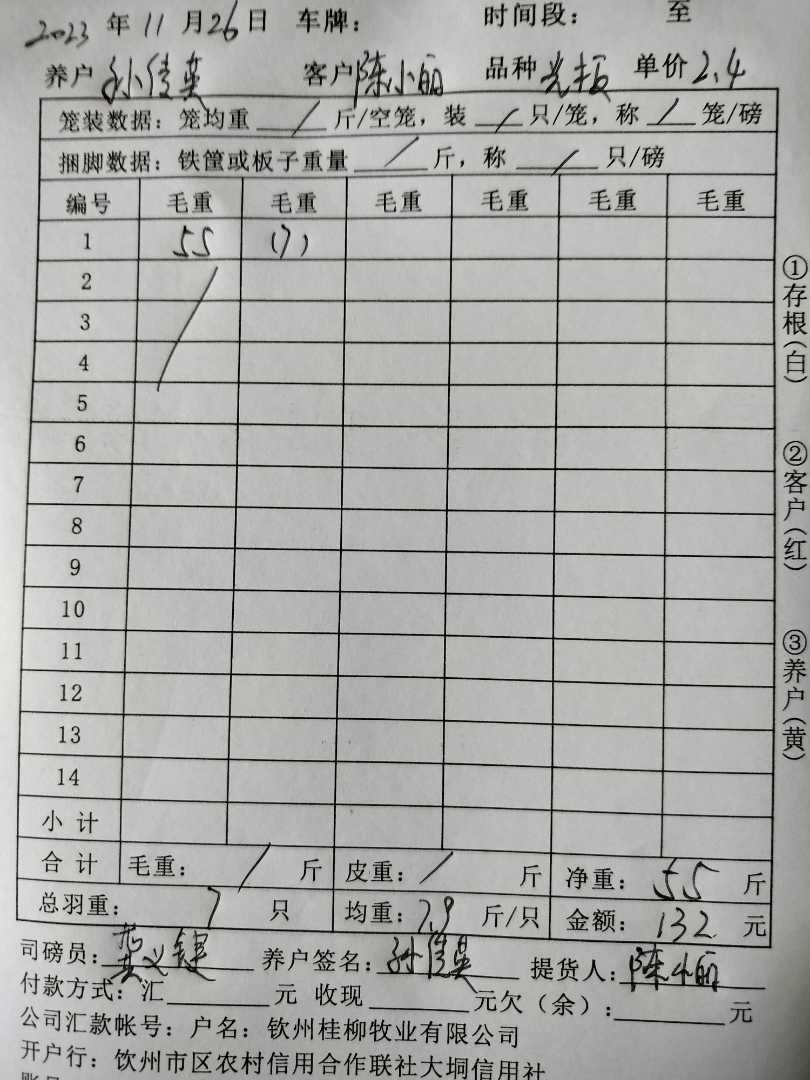 2023 年 11 月 26 日 车牌： 时间段： 至
养户 孙传英 客户 陈小丽 品种 单价 2.4
笼装数据：笼均重 / 斤/空笼，装 / 只/笼，称 / 笼/磅
捆脚数据：铁筐或板子重量 / 斤，称 / 只/磅
编号 毛重 毛重 毛重 毛重 毛重 毛重
1 55 (7)
2
3
4
5
6
7
8
9
10
11
12
13
14
小计
合计 毛重： / 斤 皮重： / 斤 净重： 55 斤
总羽重： 7 只 均重： 7.9 斤/只 金额： 132 元
司磅员： 养户签名： 孙传英 提货人： 陈小丽
付款方式：汇 元 收现 元欠（余）： 元
公司汇款帐号：户名：钦州桂柳牧业有限公司
开户行：饮州市区农村信用合作联社大垌信用社
①存根（白）
②客户（红）
③养户（黄）